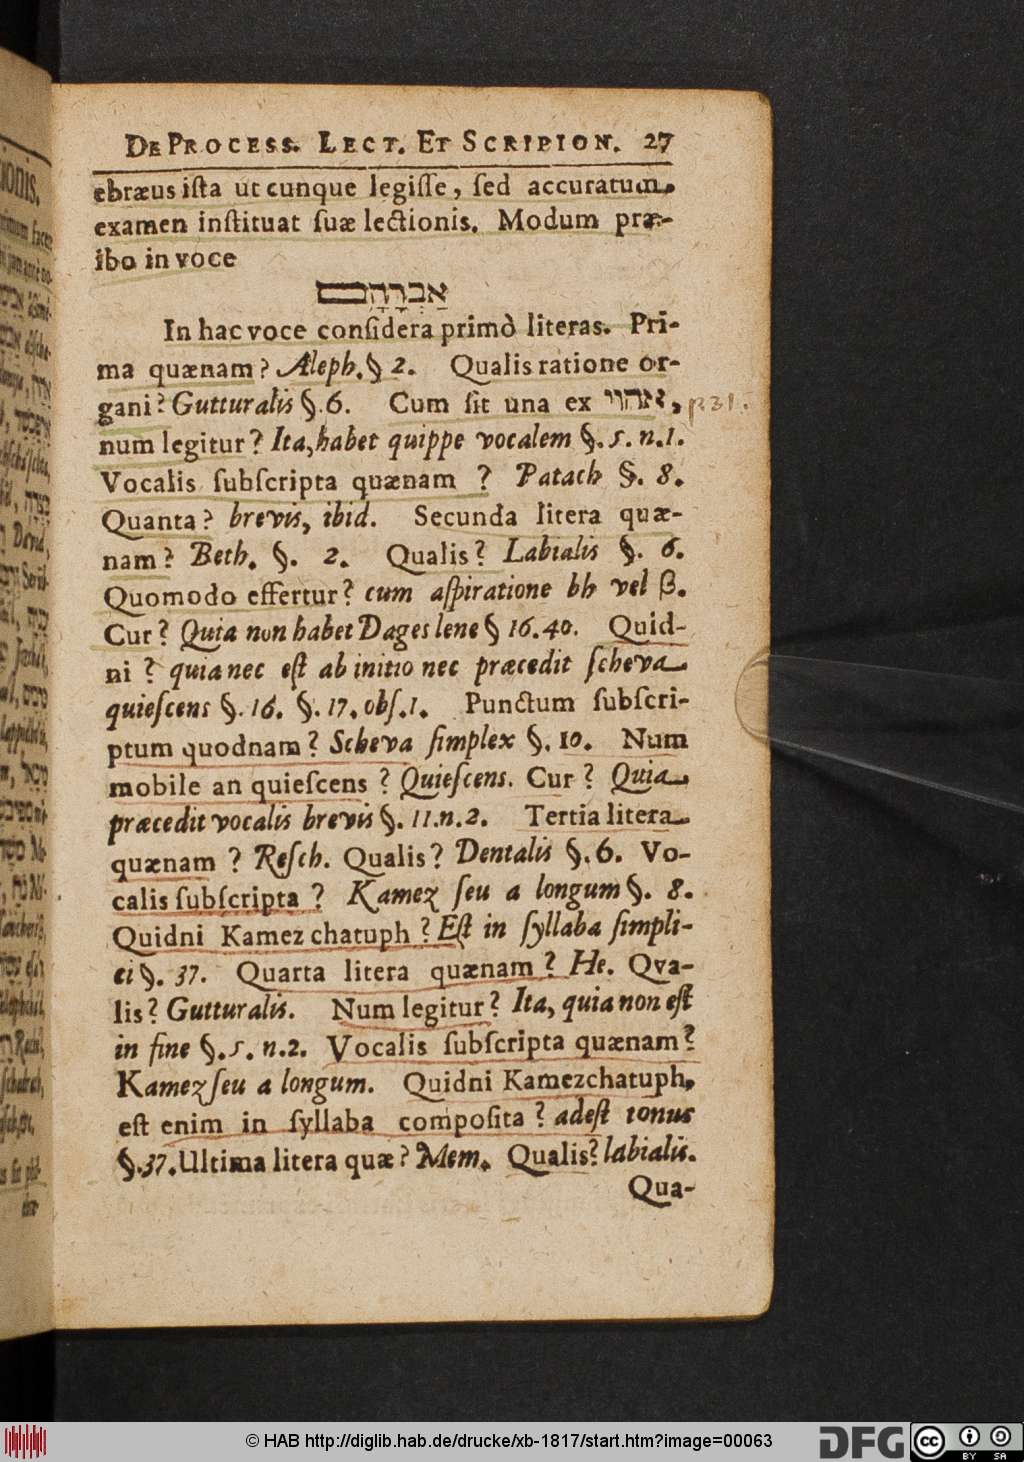 DE PROCESS. LECT. ET SCRIPTION. 27
ebræus ista ut cunque legisse, sed accuratum
examen instituat suæ lectionis. Modum præ-
ibo in voce
אַבְרָהָם
In hac voce considera primò literas. Pri-
ma quænam? Aleph. § 2. Qualis ratione or-
gani? Gutturalis §. 6. Cum sit una ex אהוי, p 31.
num legitur? Ita, habet quippe vocalem §. 5. n. 1.
Vocalis subscripta quænam? Patach §. 8.
Quanta? brevis, ibid. Secunda litera quæ-
nam? Beth. §. 2. Qualis? Labialis §. 6.
Quomodo effertur? cum aspiratione bh vel ß.
Cur? Quia non habet Dages lene § 16. 40. Quid-
ni? quia nec est ab initio nec præcedit scheva
quiescens §. 16. §. 17. obs. 1. Punctum subscri-
ptum quodnam? Scheva simplex §. 10. Num
mobile an quiescens? Quiescens. Cur? Quia
præcedit vocalis brevis §. 11. n. 2. Tertia litera
quænam? Resch. Qualis? Dentalis §. 6. Vo-
calis subscripta? Kamez seu a longum §. 8.
Quidni Kamez chatuph? Est in syllaba simpli-
ci §. 37. Quarta litera quænam? He. Qva-
lis? Gutturalis. Num legitur? Ita, quia non est
in fine §. 5. n. 2. Vocalis subscripta quænam?
Kamez seu a longum. Quidni Kamezchatuph,
est enim in syllaba composita? adest tonus
§. 37. Ultima litera quæ? Mem. Qualis? labialis.
Qua-
© HAB http://diglib.hab.de/drucke/xb-1817/start.htm?image=00063
DFG
cc BY SA